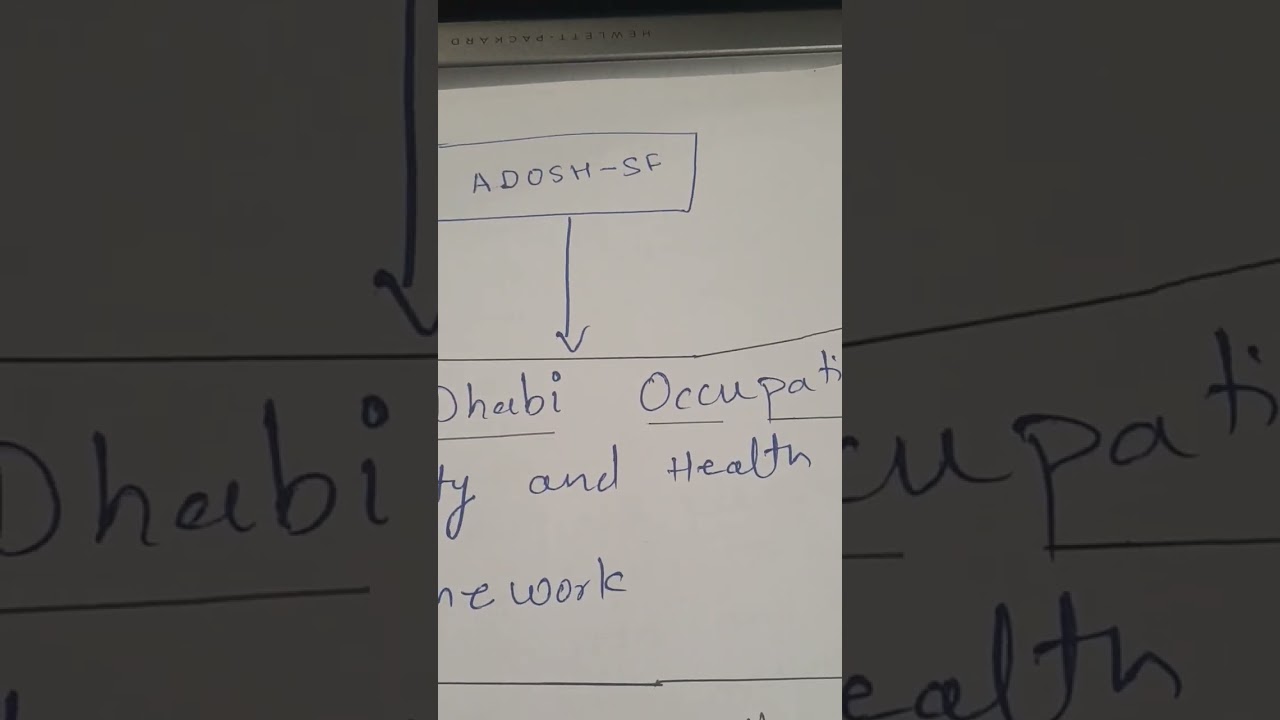 HEWLETT-PACKARD
ADOSH-SF
Dhabi Occupati
ty and Health
work